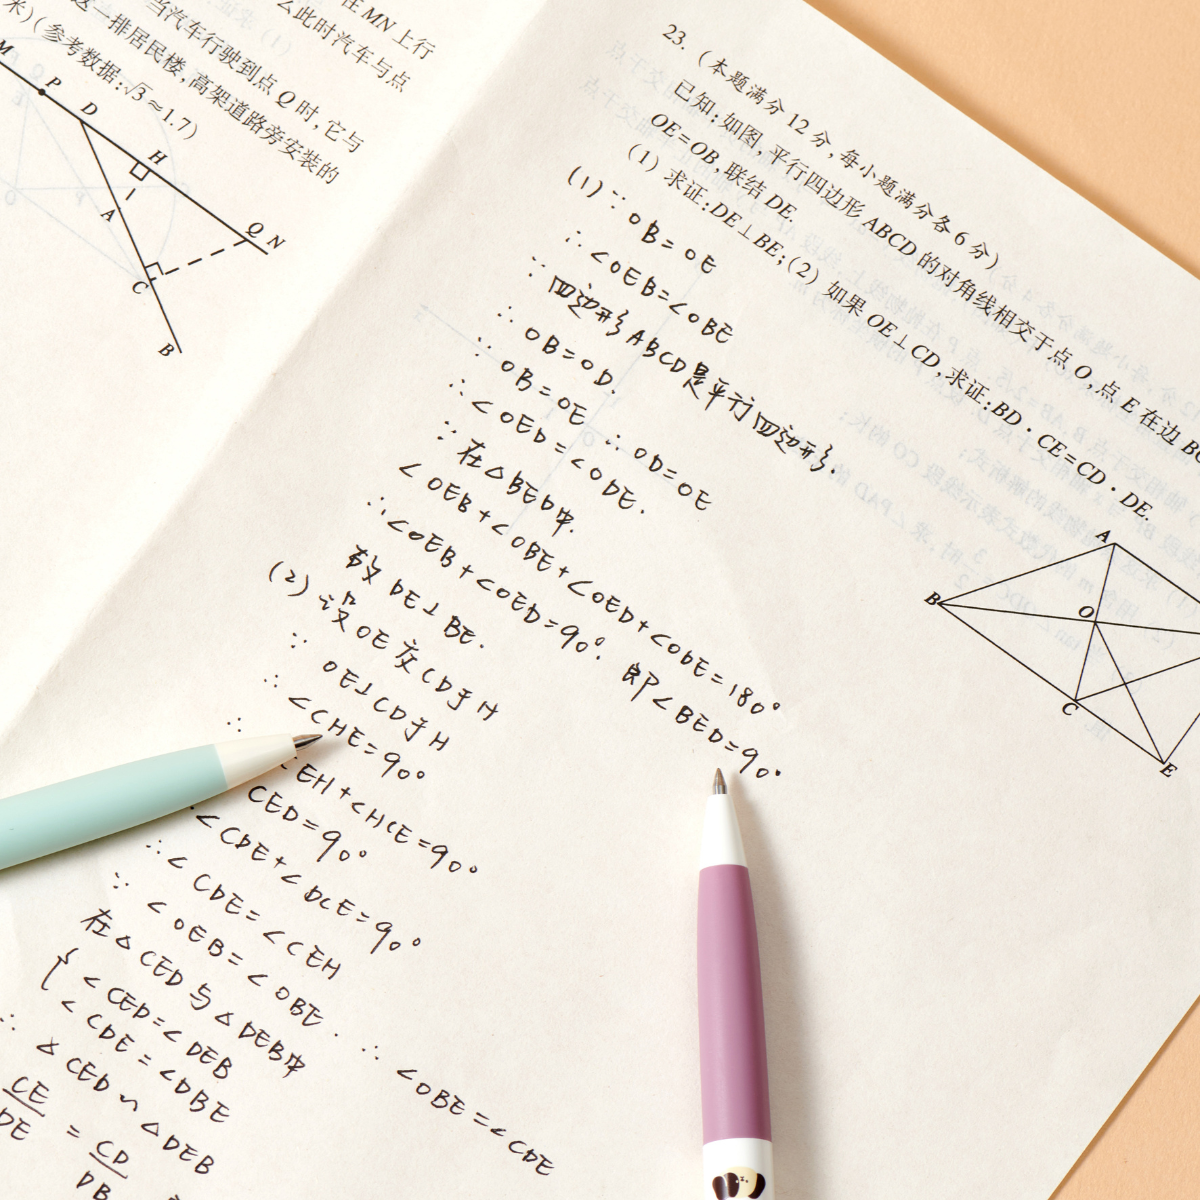 在 MN 上行
么此时汽车与点
当汽车行驶到点 Q 时,它与
这一排居民楼,高架道路旁安装的
米)(参考数据:√3≈1.7)
M
P
D
H
Q
N
A
C
B
23.(本题满分 12 分,每小题满分各 6 分)
已知:如图,平行四边形 ABCD 的对角线相交于点 O,点 E 在边 BC
OE=OB,联结 DE.
(1) 求证:DE⊥BE;(2) 如果 OE⊥CD,求证:BD·CE=CD·DE.
A
B
O
C
E
(1)∵OB=OE
∴∠OEB=∠OBE
∵四边形ABCD是平行四边形.
∴OB=OD.
∵OB=OE ∴OD=OE
∴∠OED=∠ODE.
∵在△BED中.
∠OEB+∠OBE+∠OED+∠ODE=180°
∴∠OEB+∠OED=90°. 即∠BED=90°
故DE⊥BE.
(2)设OE交CD于H
∵OE⊥CD于H
∴∠CHE=90°
∴
EH+∠HCE=90°
CED=90°
∠CDE+∠DCE=90°
∴∠CDE=∠CEH
∵∠OEB=∠OBE. ∴∠OBE=∠CDE
在△CED与△DEB中
{∠CED=∠DEB
∠CDE=∠DBE
∴△CED∽△DEB
CE/DE=CD/DB